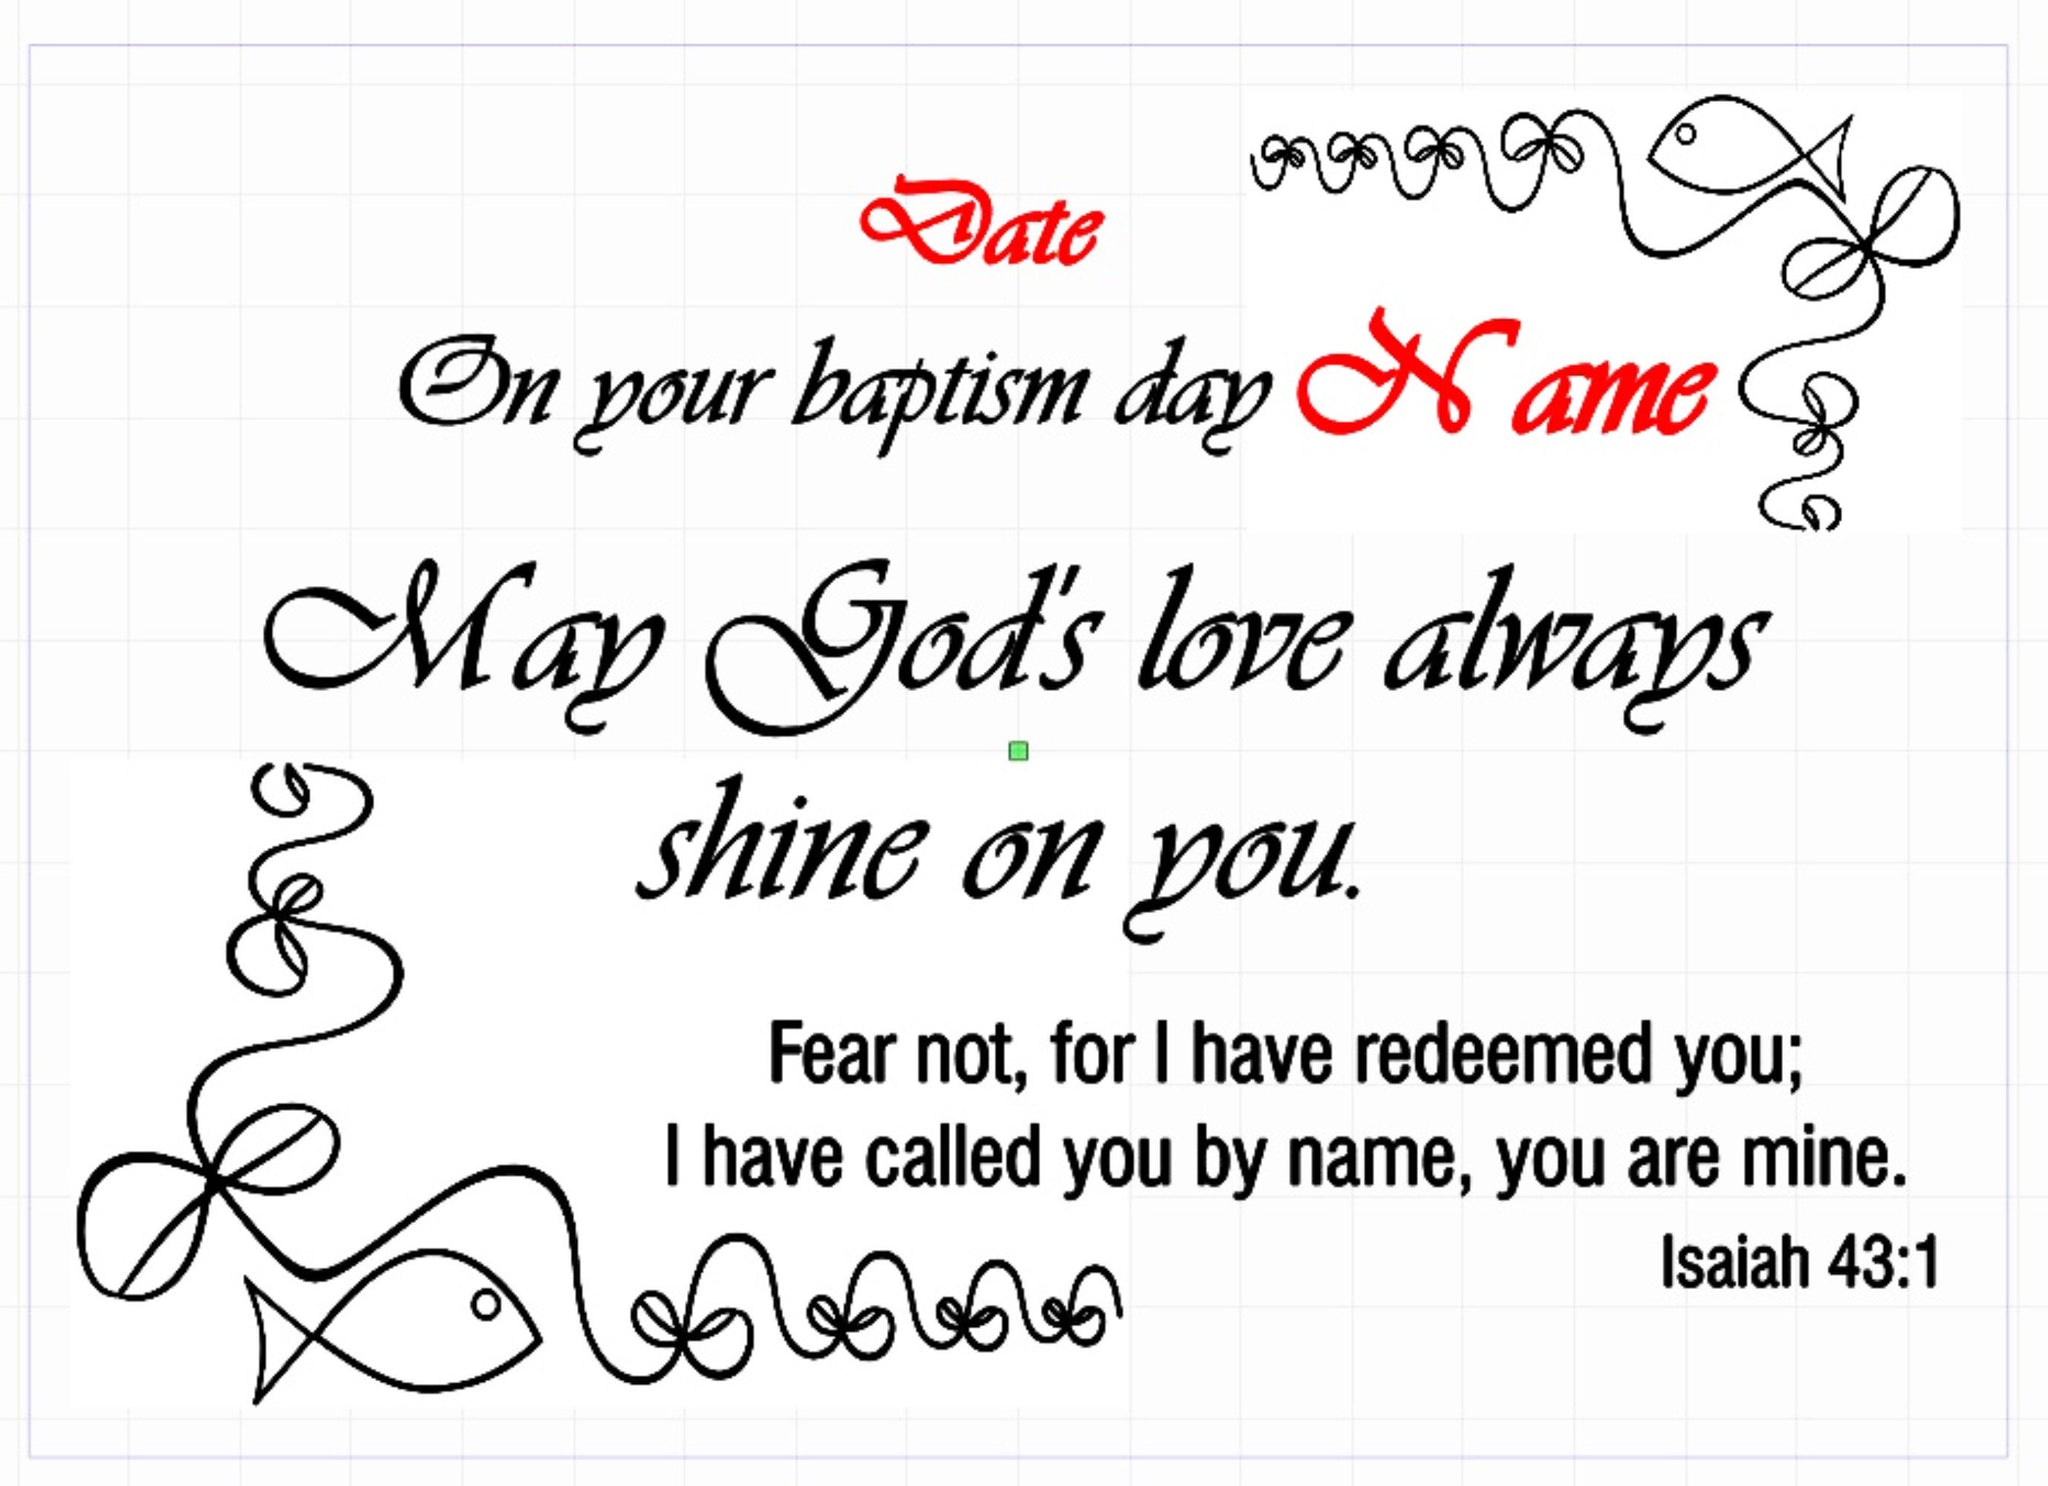 Date
On your baptism day Name
May God's love always
shine on you.
Fear not, for I have redeemed you;
I have called you by name, you are mine.
Isaiah 43:1